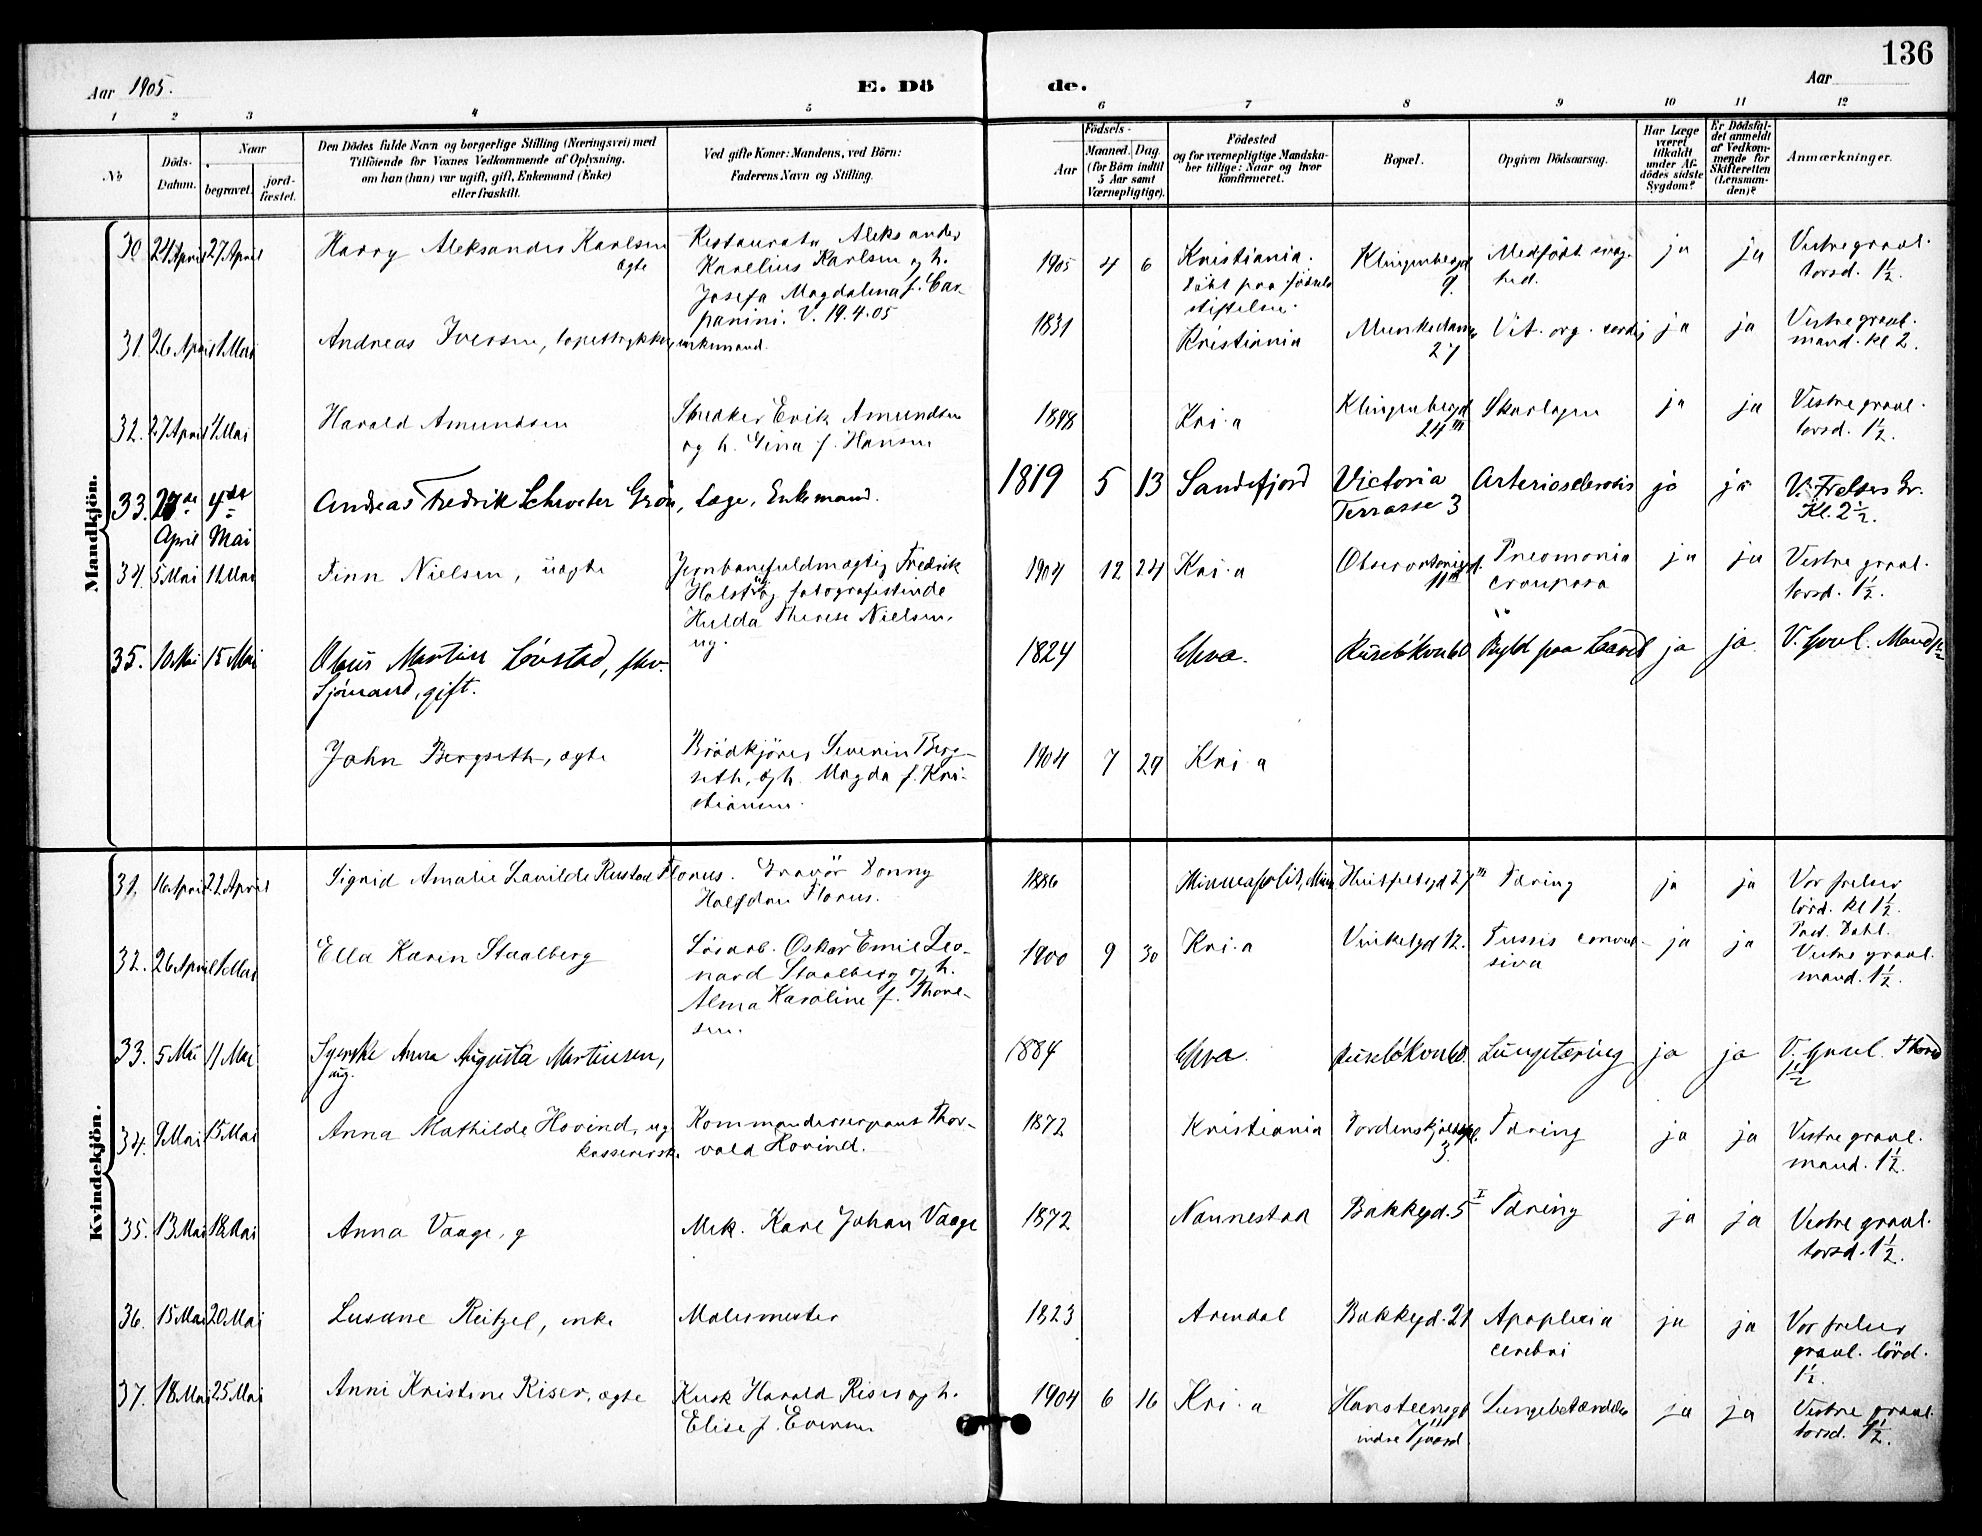 136
Aar 1905.
E. Dö de.
Aar
1 2 3 4 5 6 7 8 9 10 11 12
No
Döds-Datum.
Naar
begravet.
jord-fæstet.
Den Dödes fulde Navn og borgerlige Stilling (Næringsvei) med
Tilföiende for Voxnes Vedkommende af Oplysning,
om han (hun) var ugift, gift, Enkemand (Enke)
eller fraskilt.
Ved gifte Koner: Mandens, ved Börn:
Faderens Navn og Stilling.
Födsels-
Aar
Maaned. Dag.
(for Börn indtil
5 Aar samt
Værnepligtige).
Födested
og for værnepligtige Mandska-
ber tillige: Naar og hvor
konfirmeret.
Bopæl.
Opgiven Dödsaarsag.
Har Læge
været
tilkaldt
under Af-
dödes sidste
Sygdom?
Er Dödsfal-
det anmeldt
af Vedkom-
mende for
Skifteretten
(Lensman-
den)?
Anmærkninger.
Mandkjön.
30. 24 April 27 April Harry Aleksander Karlsen ægte Restauratör Aleksander
Karelius Karlsen og h.
Josefa Magdalena f. Car-
panini. V. 19.4.05
1905 4 6 Kristiania.
döbt paa födsels
stiftelsen.
Klingenbergd 9. Medfödt svag-
hed. ja ja Vestre gravl.
torsd. 1½.
31. 26 April 1 Mai Andreas Iversen, tapettrykker, enkemand.
1831 Kristiania Munkedamsv 27 Vit. org. cordis ja ja Vestre gravl.
mand. kl 2.
32. 27 April 4 Mai Harald Amundsen Snedker Erik Amundsen
og h. Gina f. Hansen
1898 Kri.a Klingenbergd 24 III Skarlagen ja ja Vestre gravl.
torsd. 1½.
33. 27de April 4de Mai Andreas Fredrik Schroeter Grön, Læge, Enkemand.
1819 5 13 Sandefjord Victoria
Terrasse 3 Arteriosclerosis ja ja V. Frelsers Gr.
Kl. 2½.
34. 5 Mai 11 Mai Finn Nielsen, uægte Jernbanefuldmægtig Fredrik
Holst og fotografistinde
Hulda Therese Nielsen,
ug.
1904 12 24 Kri.a Observatoriegd. 11 Pneomonia
crouposa ja ja Vestre gravl.
torsd. 1½.
35. 10 Mai 15 Mai Olaus Martin Lövstad, fhv.
Sjömand, gift.
1824 Chra. Ruselökvn 60 Byld paa Laaret ja ja V. Gravl. Mand 1½
John Bergseth, ægte Brödkjörer Severin Berg-
seth, og h. Magda f. Kri-
stiansen.
1904 7 29 Kri.a
Kvindekjön.
31. 16 April 22 April Sigrid Amalie Lavilde Rustad Florus. Gravör Conny
Halfdan Florus.
1886 Minneapolis, Minn Huitfeldtsgd 27 III Tæring ja ja Vor frelser
lörd. kl 1½.
Past. Dahl.
32. 26 April 1 Mai Ella Karin Staalberg Lösarb. Oskar Emil Leo-
nard Staalberg og h.
Alma Karoline f. Thorl-
sen.
1900 9 30 Kri.a Vinkelgd 12. Tussis convul-
siva ja ja Vestre gravl.
mand. 1½.
33. 5 Mai 11 Mai Syerske Anna Augusta Martinsen,
ug.
1884 Chra. Ruselökvn 60. Lungetæring ja ja V. Gravl. Thorsd
1½
34. 9 Mai 15 Mai Anna Mathilde Hovind, ug
kassererske Kommandersergeant Thor-
vald Hovind.
1872 Kristiania Tordenskjoldsgd. 3. Tæring ja ja Vestre gravl.
mand. 1½.
35. 13 Mai 18 Mai Anna Vaage, g Mek. Karl Johan Vaage
1872 Nannestad Bakkegd. 5 I Tæring ja ja Vestre gravl.
torsd. 1½.
36. 15 Mai 20 Mai Susane Reitzel, enke Malermester
1823 Arendal Bakkegd. 21 Apoplexia
cerebri ja ja Vor frelser
gravl. lörd.
1½.
37. 18 Mai 25 Mai Anni Kristine Riser, ægte Kusk Harald Riser og h.
Elise f. Evensen
1904 6 16 Kri.a Hansteensgd
indre Gaard Lungebetændelse ja ja Vestre gravl.
torsd. 1½.